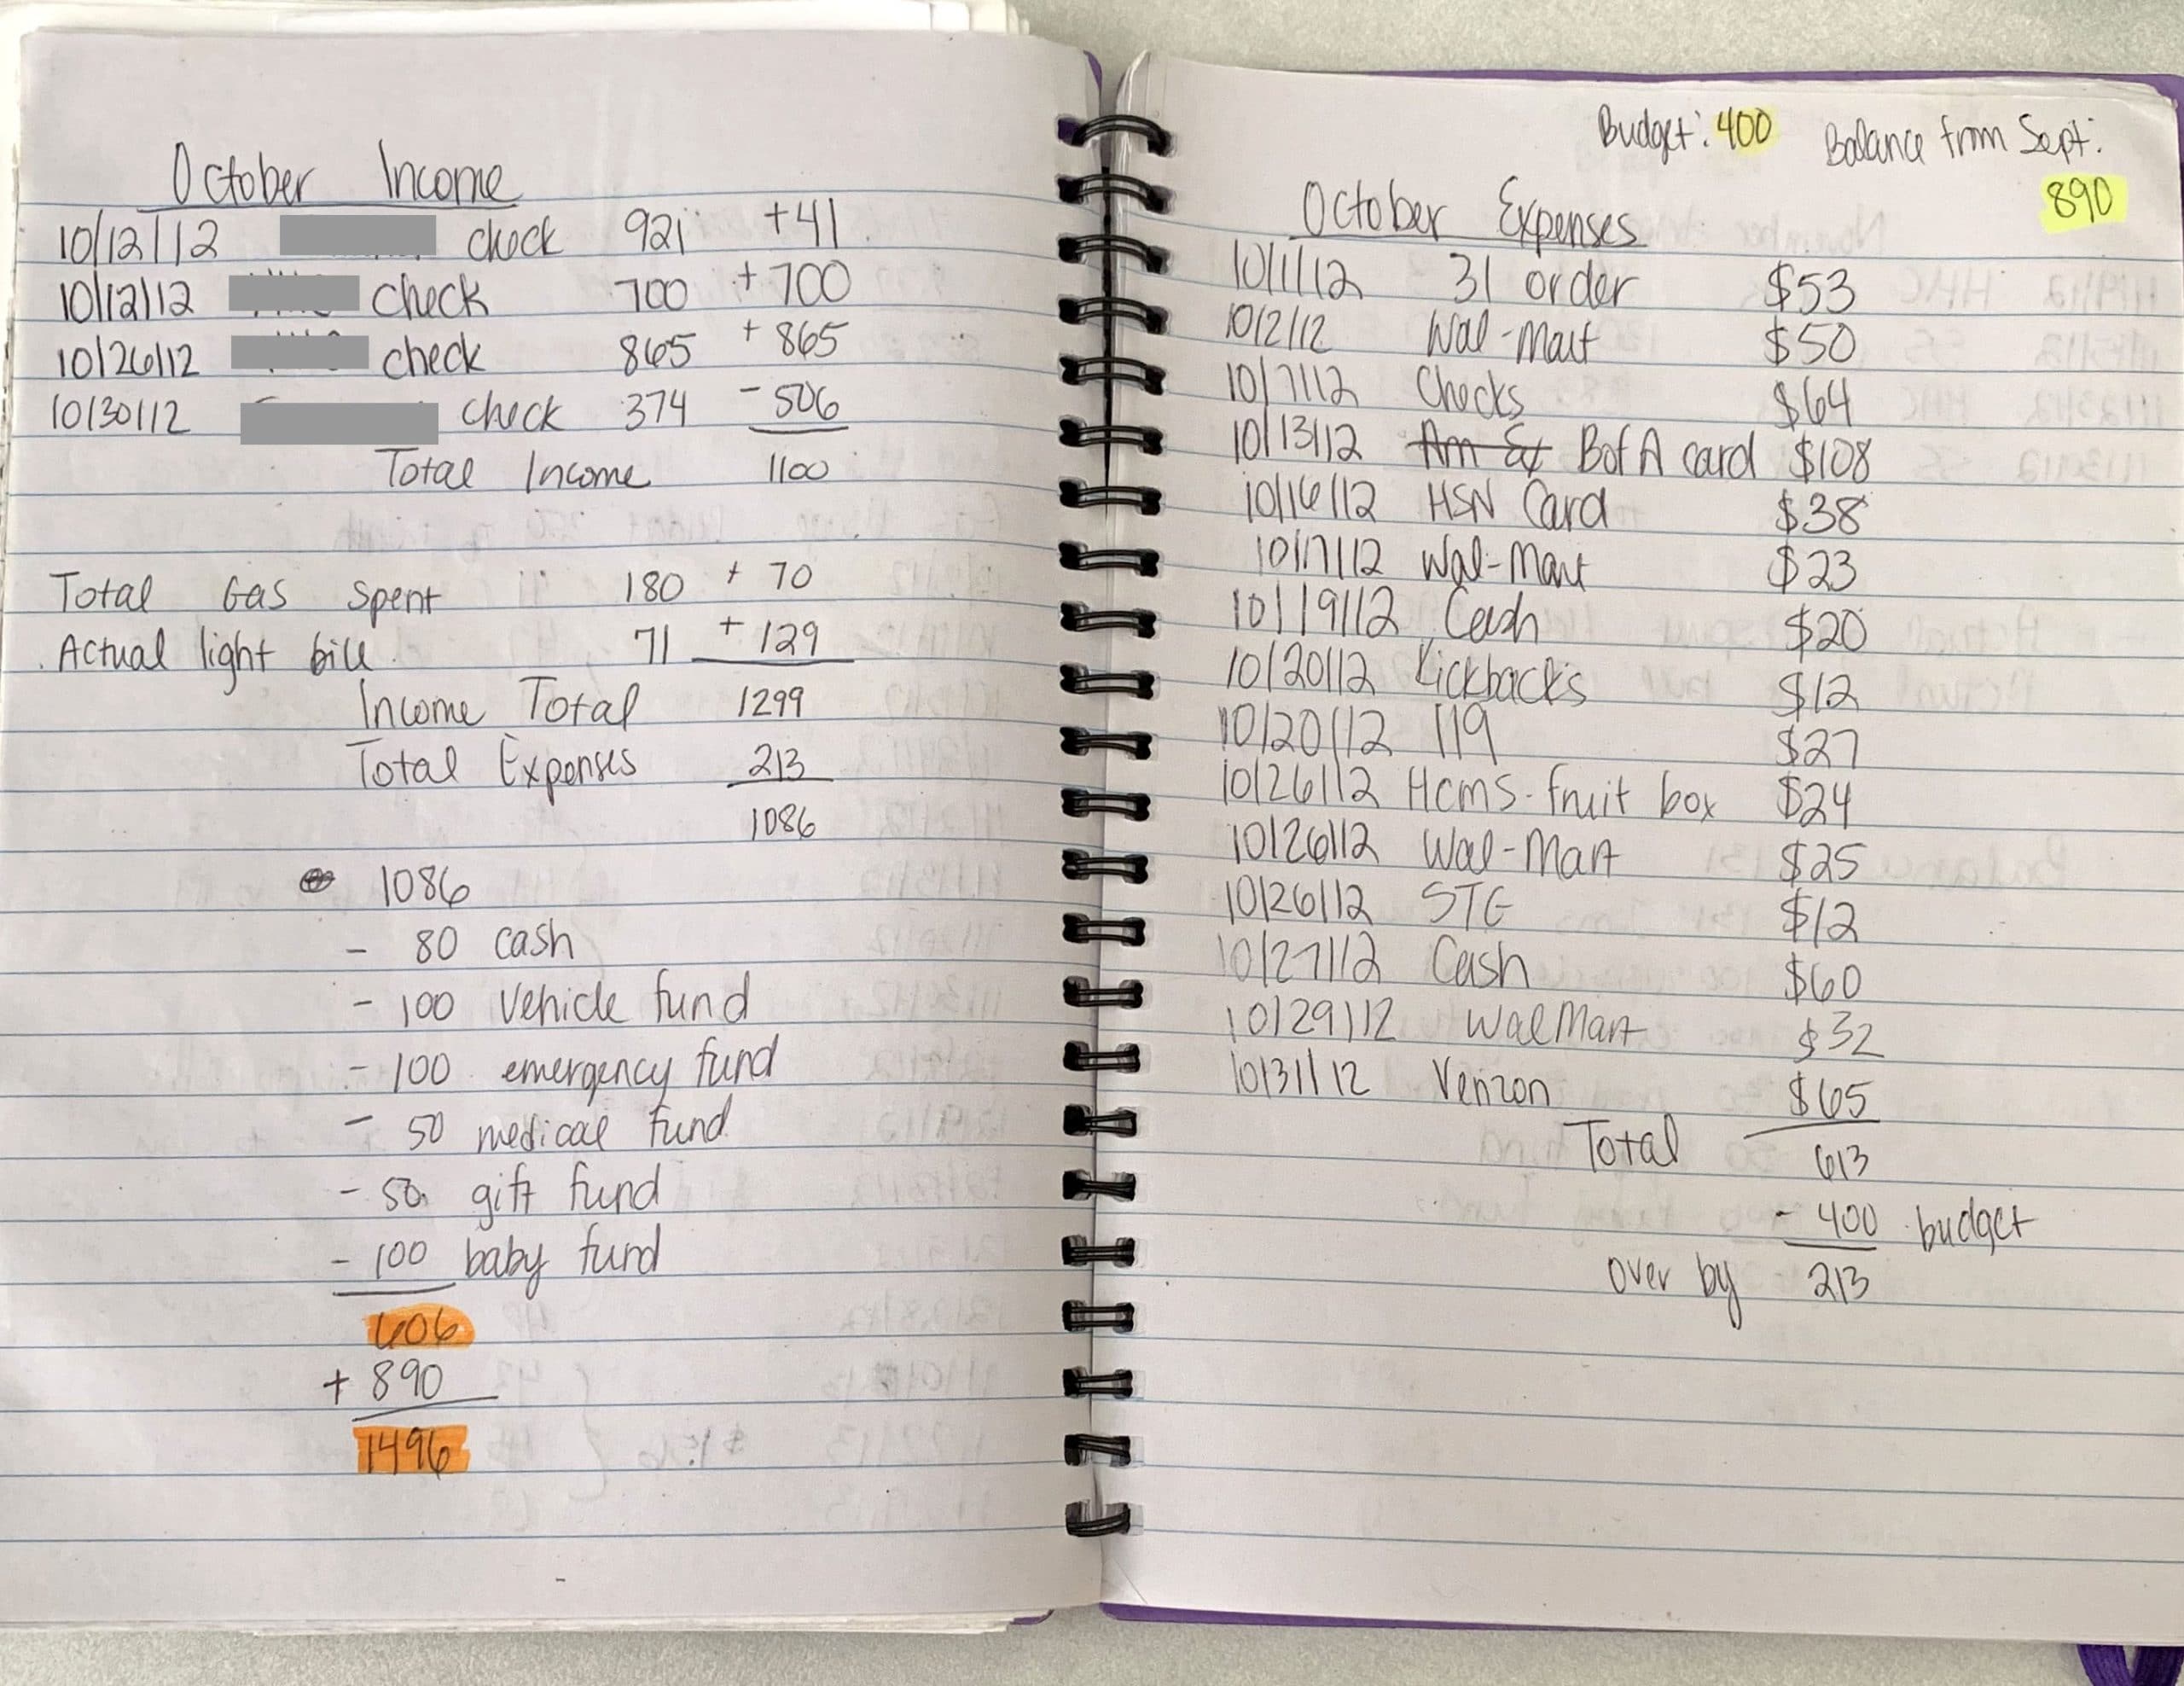 October Income
10/12/12 check 921 +41
10/12/12 check 700 + 700
10/26/12 check 865 + 865
10/30/12 check 374 - 506
Total Income 1100
Total Gas spent 180 + 70
Actual light bill 71 + 129
Income Total 1299
Total Expenses 213
1086
1086
- 80 cash
- 100 vehicle fund
- 100 emergency fund
- 50 medical fund
- 50 gift fund
- 100 baby fund
606
+ 890
1496
Budget: 400 Balance from Sept:
890
October Expenses
10/1/12 31 order $53
10/2/12 Wal-Mart $50
10/7/12 Checks $64
10/13/12 Am Ex BofA card $108
10/16/12 HSN Card $38
10/17/12 Wal-Mart $23
10/19/12 Cash $20
10/20/12 Kickbacks $12
10/20/12 119 $27
10/26/12 Hcms-fruit box $24
10/26/12 Wal-Mart $25
10/26/12 STG $12
10/27/12 Cash $60
10/29/12 WalMart $32
10/31/12 Verizon $65
Total 613
- 400 budget
over by 213